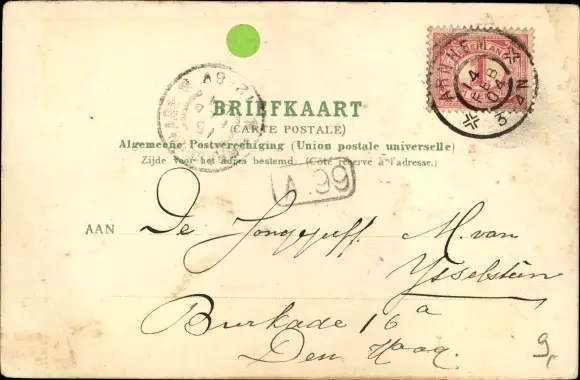 BRIEFKAART
(CARTE POSTALE)
Algemeene Postvereeniging (Union postale universelle)
Zijde voor het adres bestemd. (Côté réservé à l'adresse.)
A.99
ARNHEM
14 FEB 04
3-4N
AAN De Jongejuff. M. van
Ysselstein
Bierkade 16a
Den Haag.
9,